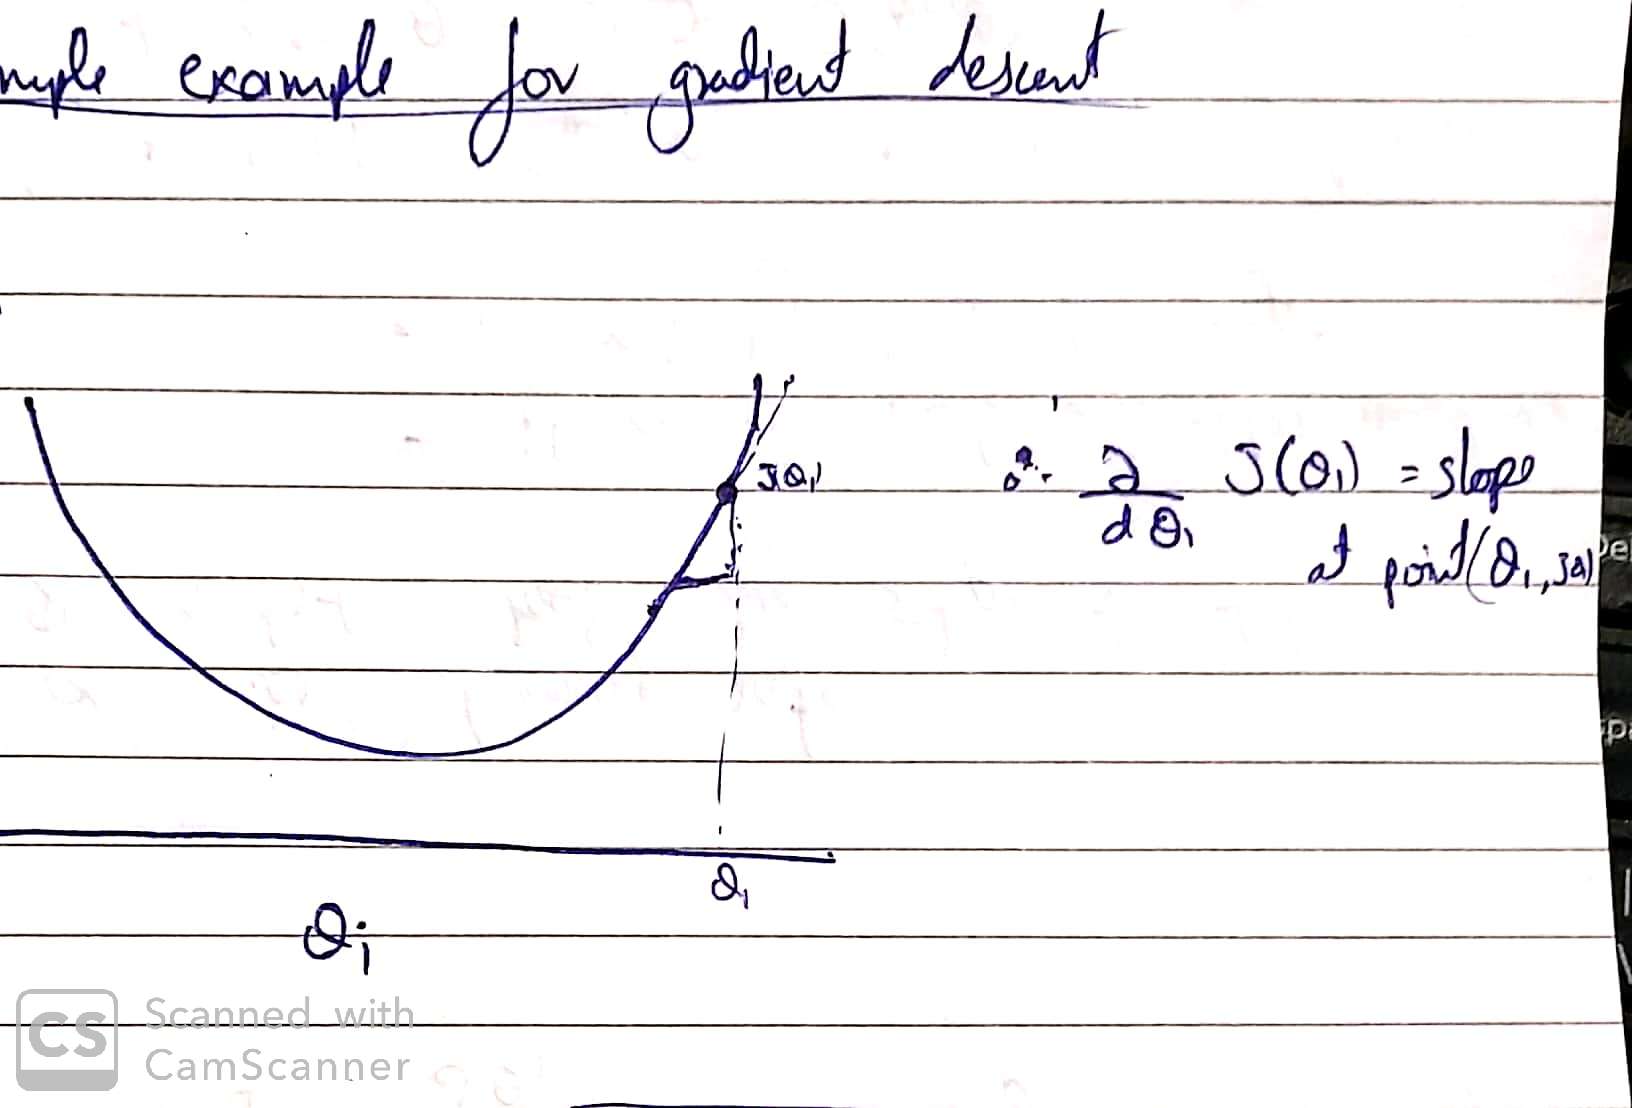 mple example for gradient descent
J(θ₁)
∴ ∂/dθ₁ J(θ₁) = slope
at point (θ₁, Jθ₁)
θ₁
θi
CS Scanned with
CamScanner